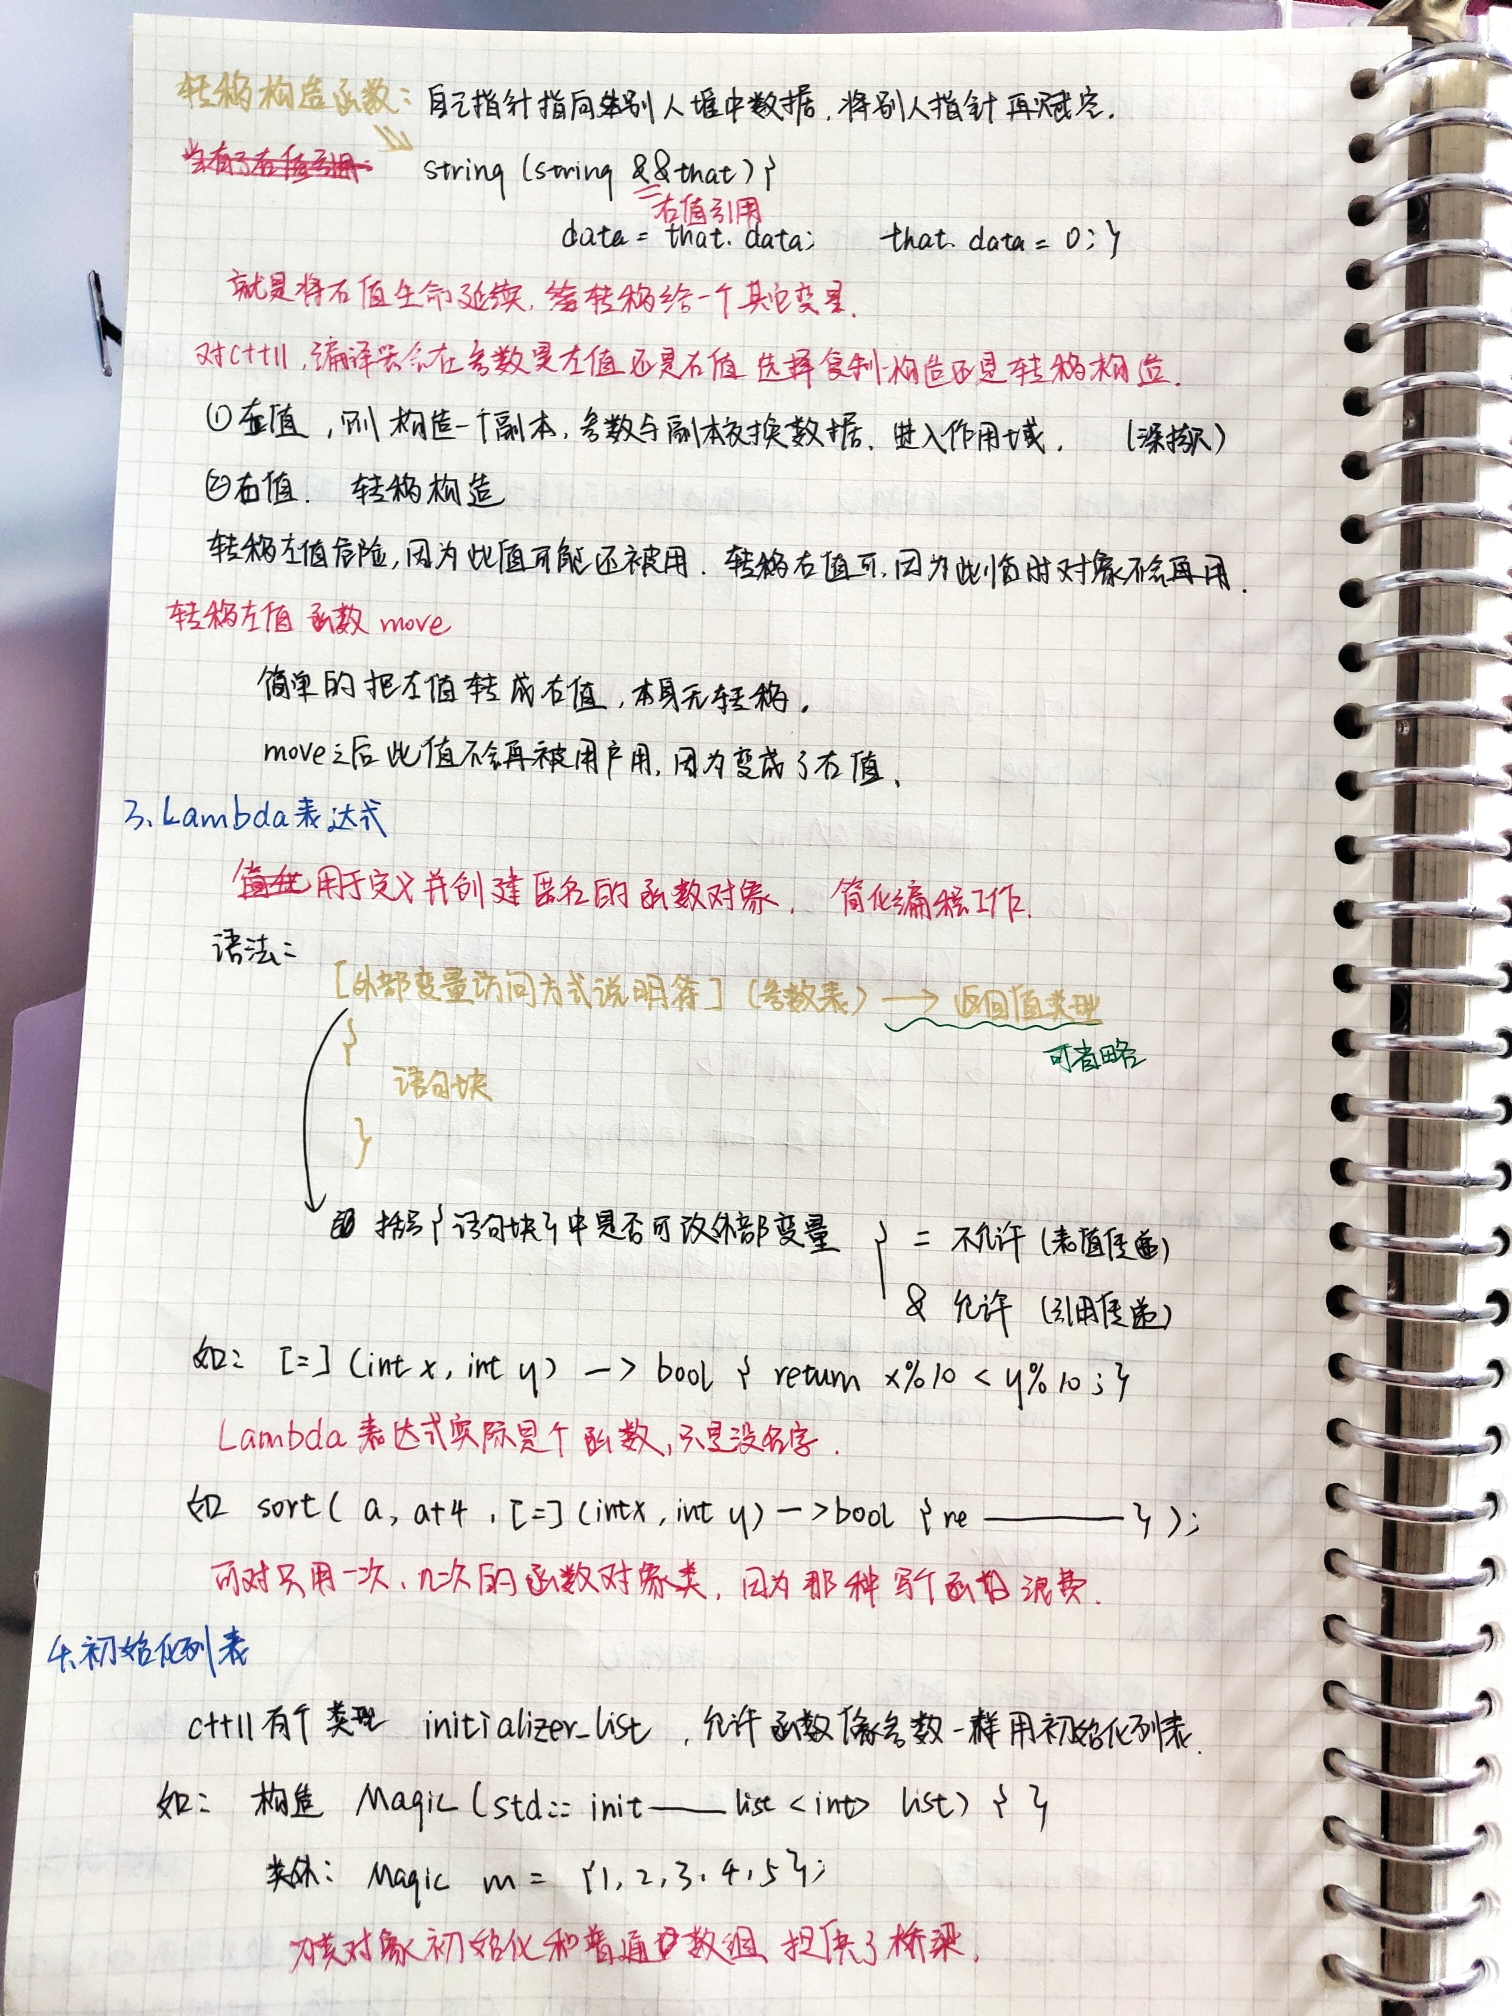 转移构造函数: 自己指针指向别人堆中数据,将别人指针再赋空.
string (string &&that) {
右值引用
data = that. data; that. data = 0; }
就是将右值生命延续,转移给一个其它变量.
对C++11,编译器会在参数是左值还是右值选择复制构造还是转移构造.
①左值,则构造一个副本,参数与副本交换数据.进入作用域. (深拷贝)
②右值. 转移构造
转移左值危险,因为此值可能还被用.转移右值可,因为此临时对象不会再用.
转移左值函数 move
简单的把左值转成右值,本身无转移.
move之后此值不会再被用户用,因为变成了右值、
3、Lambda表达式
用于定义并创建匿名的函数对象. 简化编程工作.
语法:
[外部变量访问方式说明符] (参数表) → 返回值类型
可省略
{
语句块
}
括号{语句块}中是否可改外部变量 { = 不允许 (表值传递)
& 允许 (引用传递)
如: [=] (int x, int y) -> bool { return x%10 < y%10; }
Lambda表达式实际是个函数,只是没名字.
如 sort( a, a+4, [=] (int x, int y) -> bool { re —— } );
可对只用一次、几次的函数对象类,因为那种写个函数浪费.
4、初始化列表
C++11有个类型 initializer_list ,允许函数像参数一样用初始化列表.
如: 构造 Magic (std:: init —— list <int> list) { }
类外: Magic m = {1, 2, 3, 4, 5};
为类对象初始化和普通数组提供了桥梁.